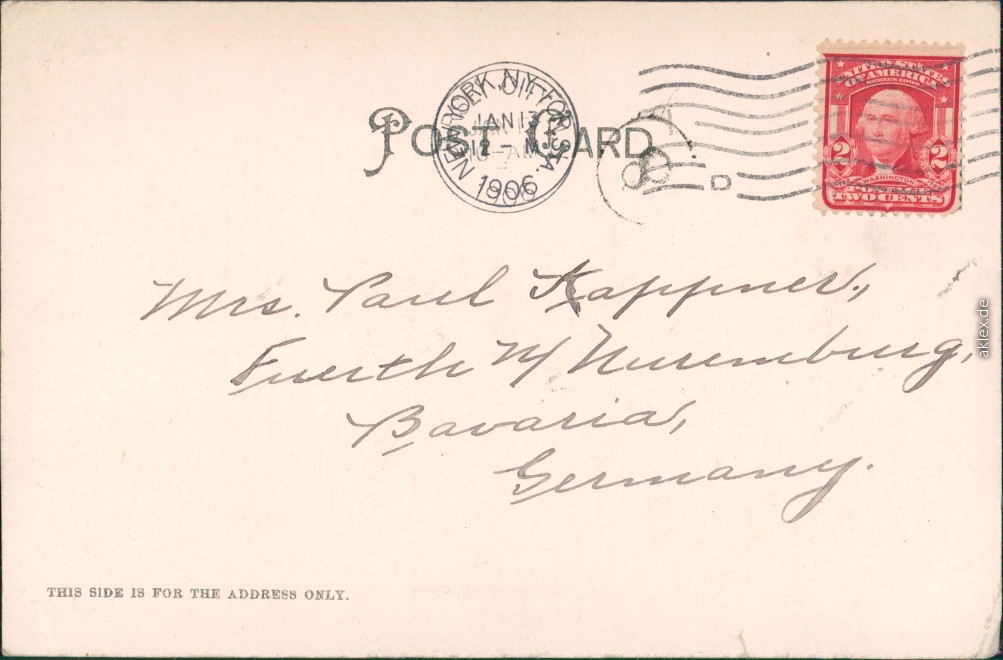 POST CARD
NEW YORK, N.Y. FOR. STA.
JAN 13
12 - M
1906
D
UNITED STATES
OF AMERICA
SERIES 1902
2 2
WASHINGTON
TWO CENTS
Mrs. Paul Kappner,
Fuerth N/ Nuremburg,
Bavaria,
Germany.
THIS SIDE IS FOR THE ADDRESS ONLY.
aklex.de